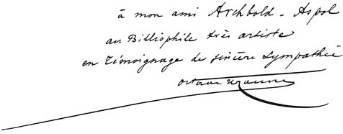 à mon ami Archbold-Aspol
au Bibliophile très artiste
en Témoignage de sincère Sympathie
Octave Uzanne